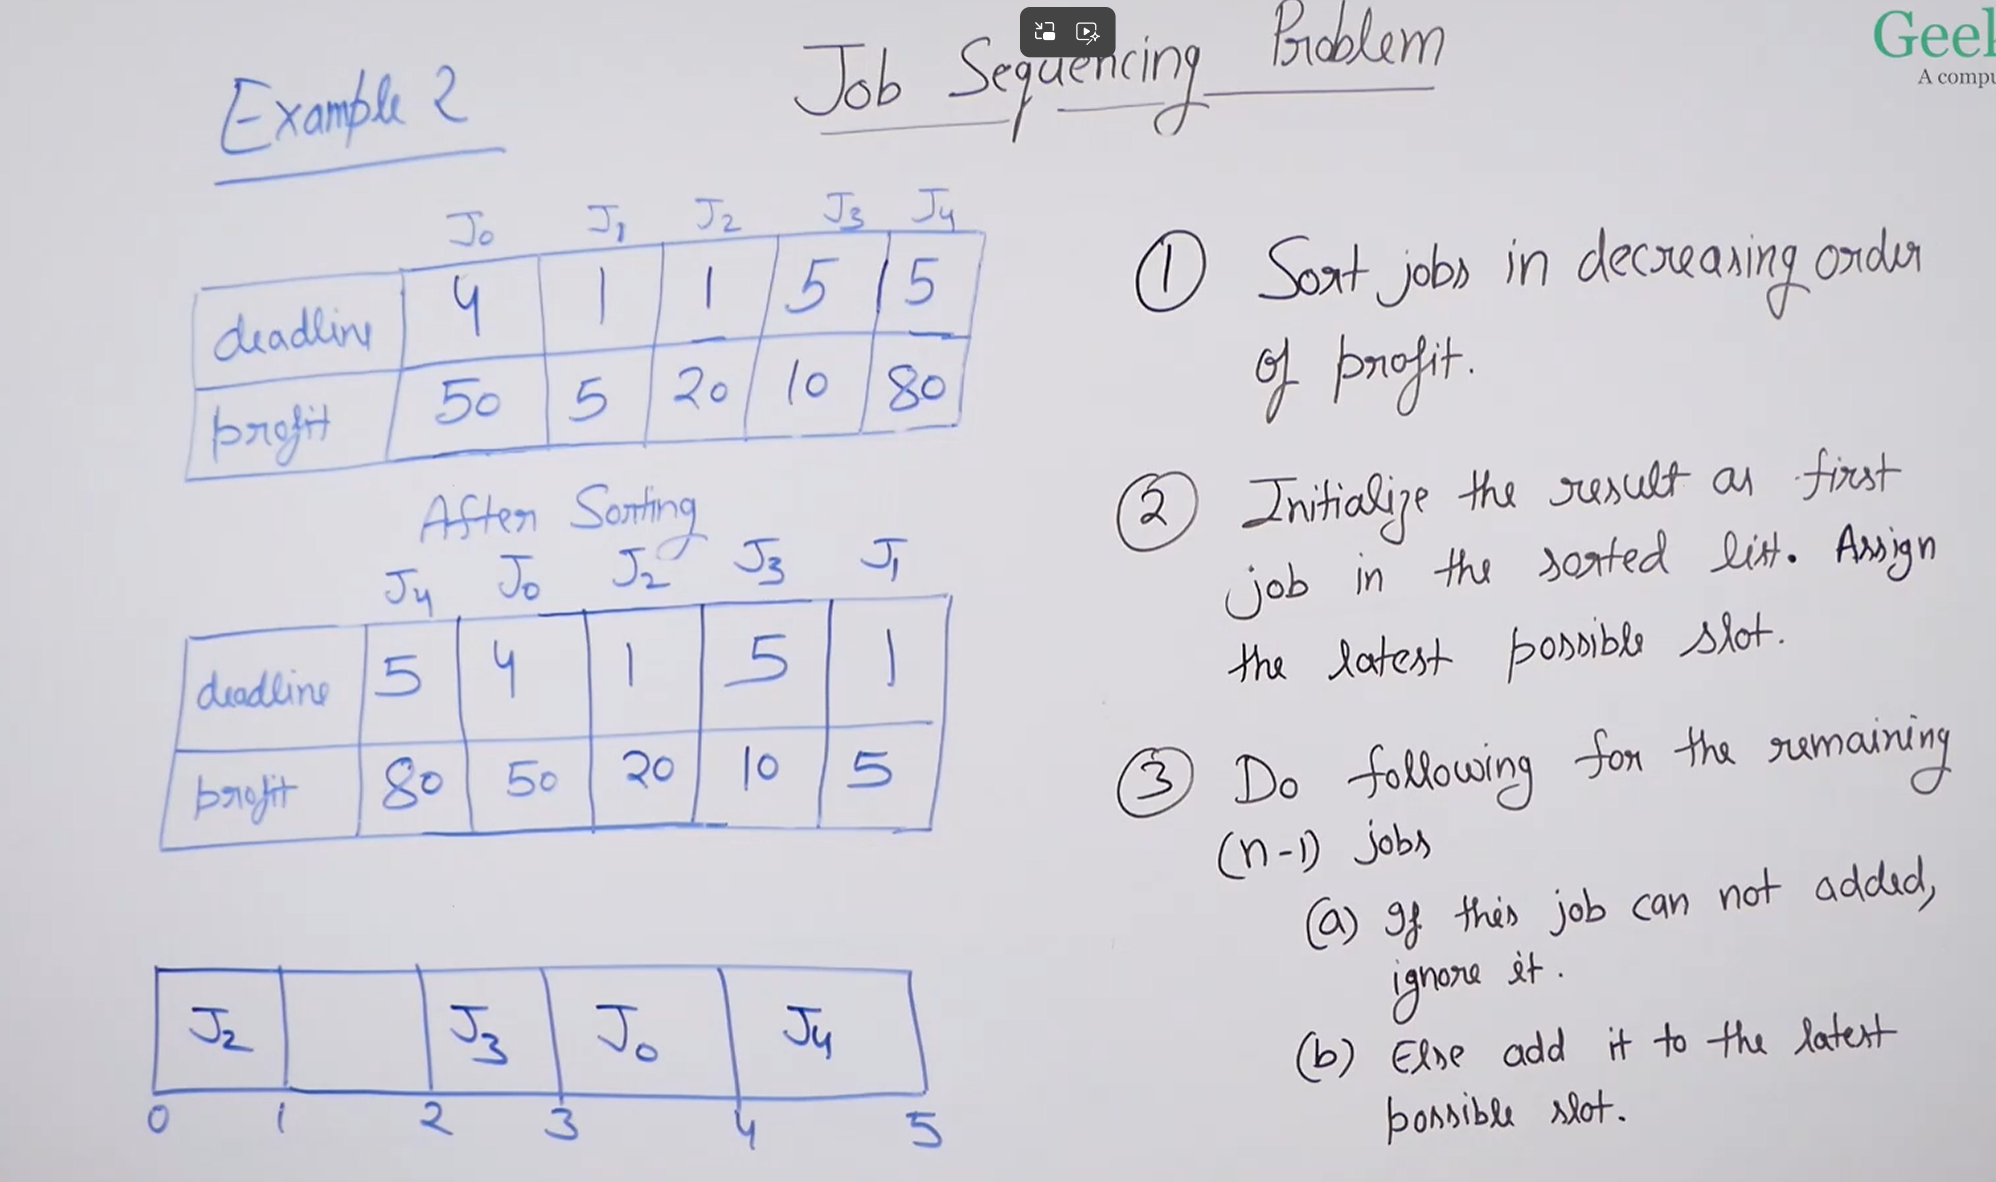 Job Sequencing Problem
Geek
A compu
Example 2
J0 J1 J2 J3 J4
deadline 4 1 1 5 5
profit 50 5 20 10 80
After Sorting
J4 J0 J2 J3 J1
deadline 5 4 1 5 1
profit 80 50 20 10 5
J2 J3 J0 J4
0 1 2 3 4 5
① Sort jobs in decreasing order
of profit.
② Initialize the result as first
job in the sorted list. Assign
the latest possible slot.
③ Do following for the remaining
(n-1) jobs
(a) If this job can not added,
ignore it.
(b) Else add it to the latest
possible slot.